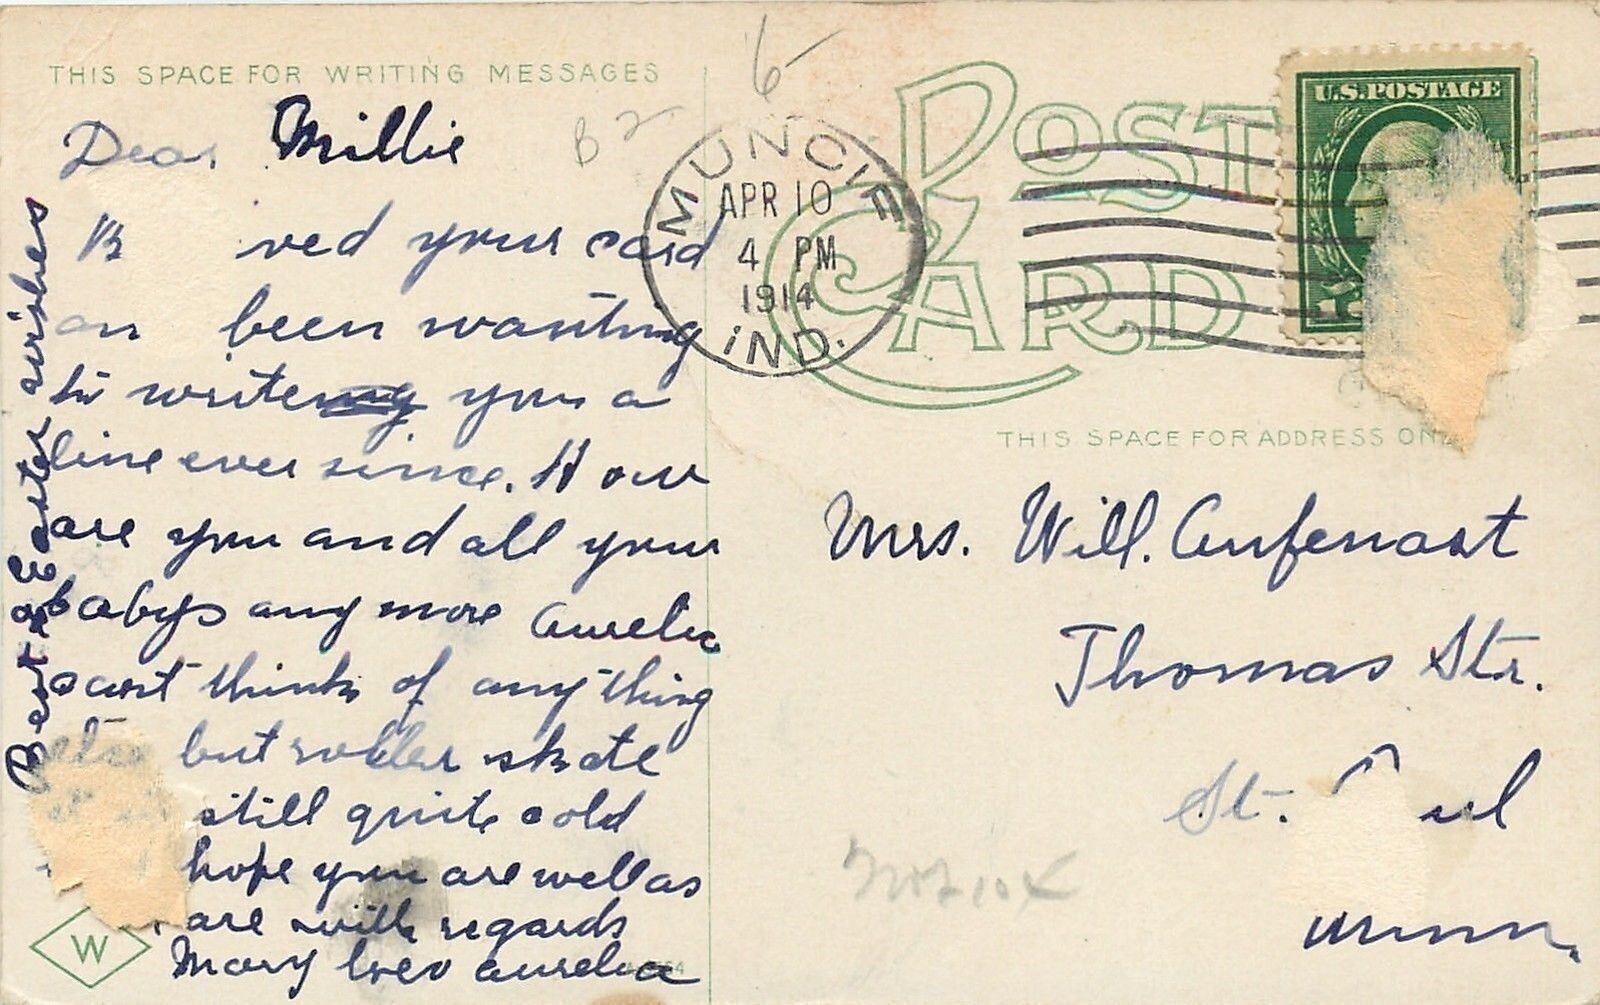 THIS SPACE FOR WRITING MESSAGES
Dear Millie
ved your card
been wanting
to write you a
line ever since. How
are you and all your
babys any more Aurelia
cant think of anything
else but roller skate
still quite cold
hope you are well as
are with regards
Mary and Aurelia
Best Easter wishes
W
6-
B 2
MUNCIE
APR 10
4 PM
1914
IND.
POST
CARD
U.S. POSTAGE
THIS SPACE FOR ADDRESS ONL
Mrs. Will. Aufenast
Thomas Str.
St. Paul
Minn.